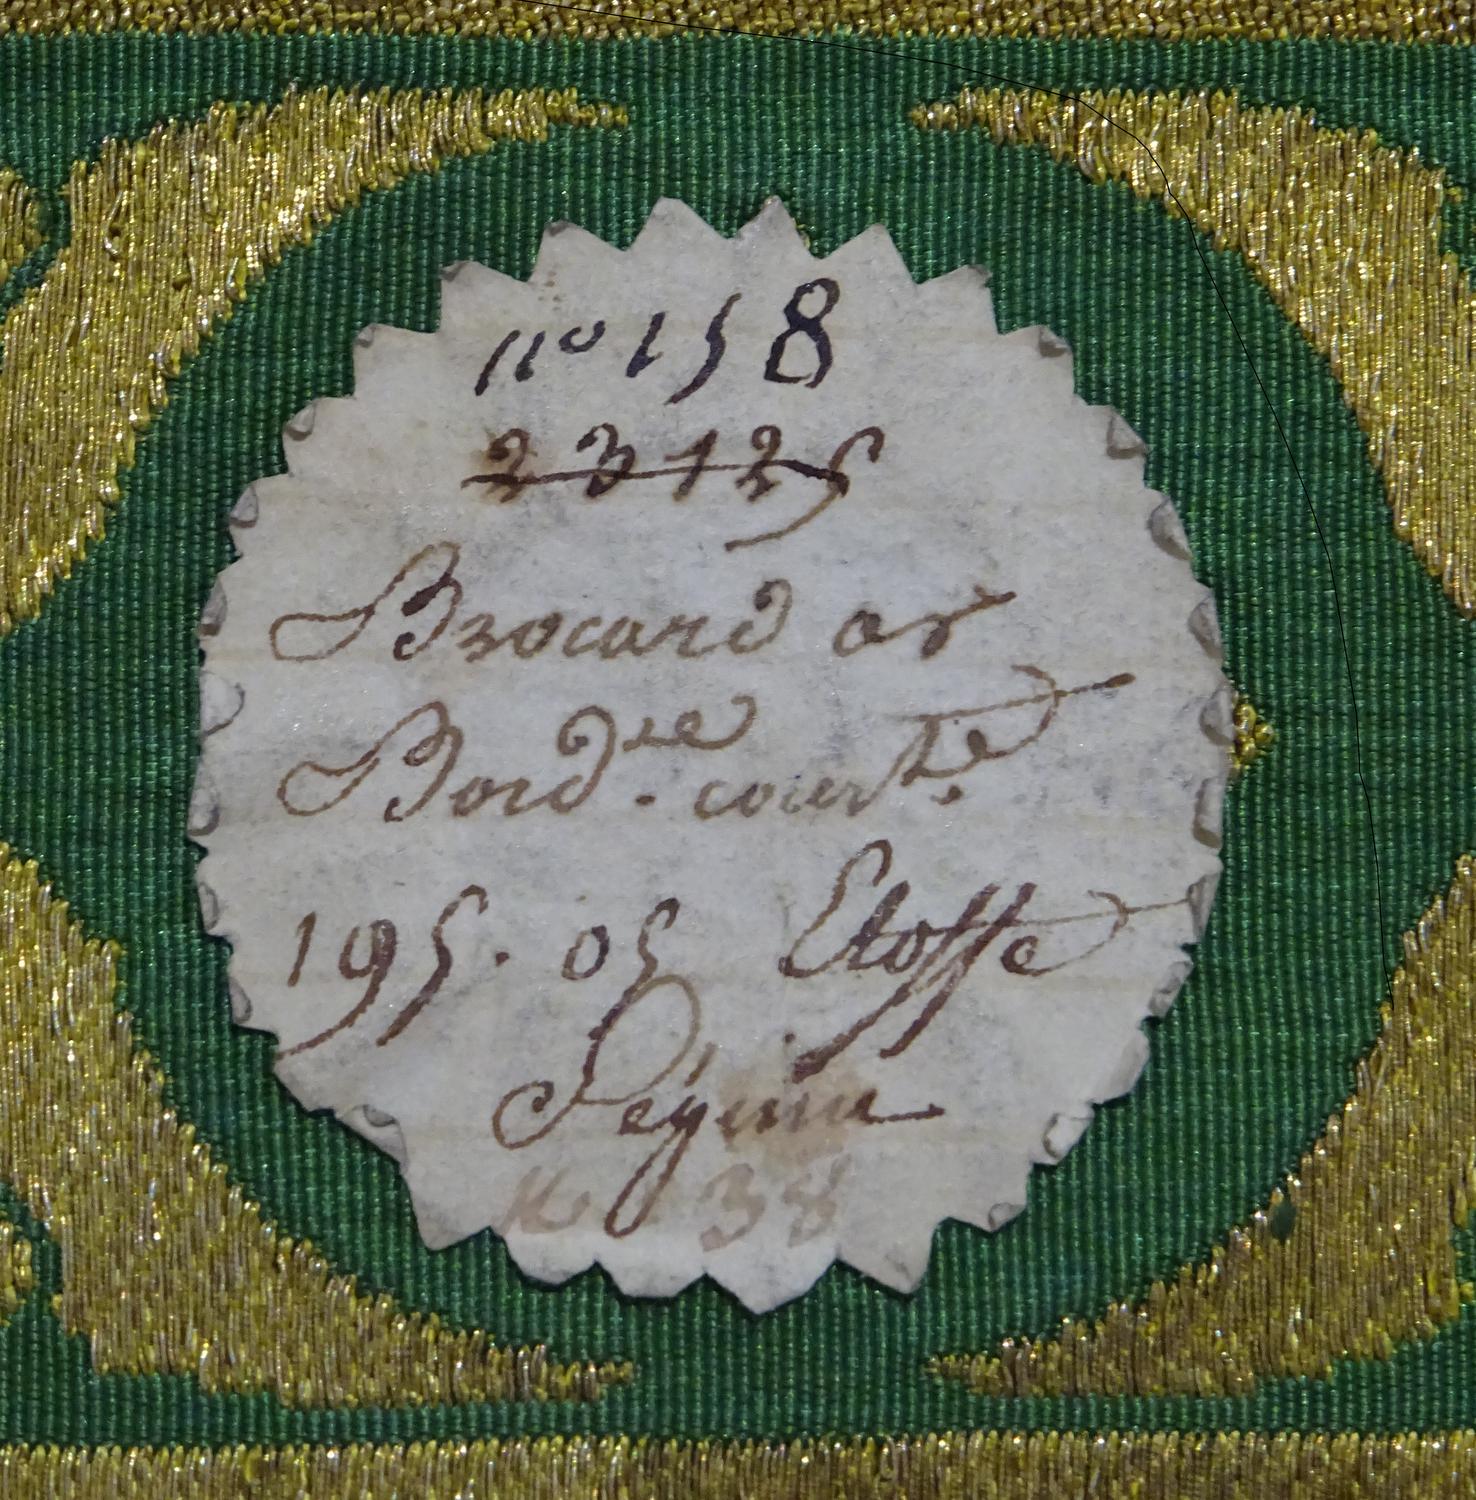 no 158
23125
Brocard or
Bord.re courte.
195.05 Etoffe
Pégine
No 38